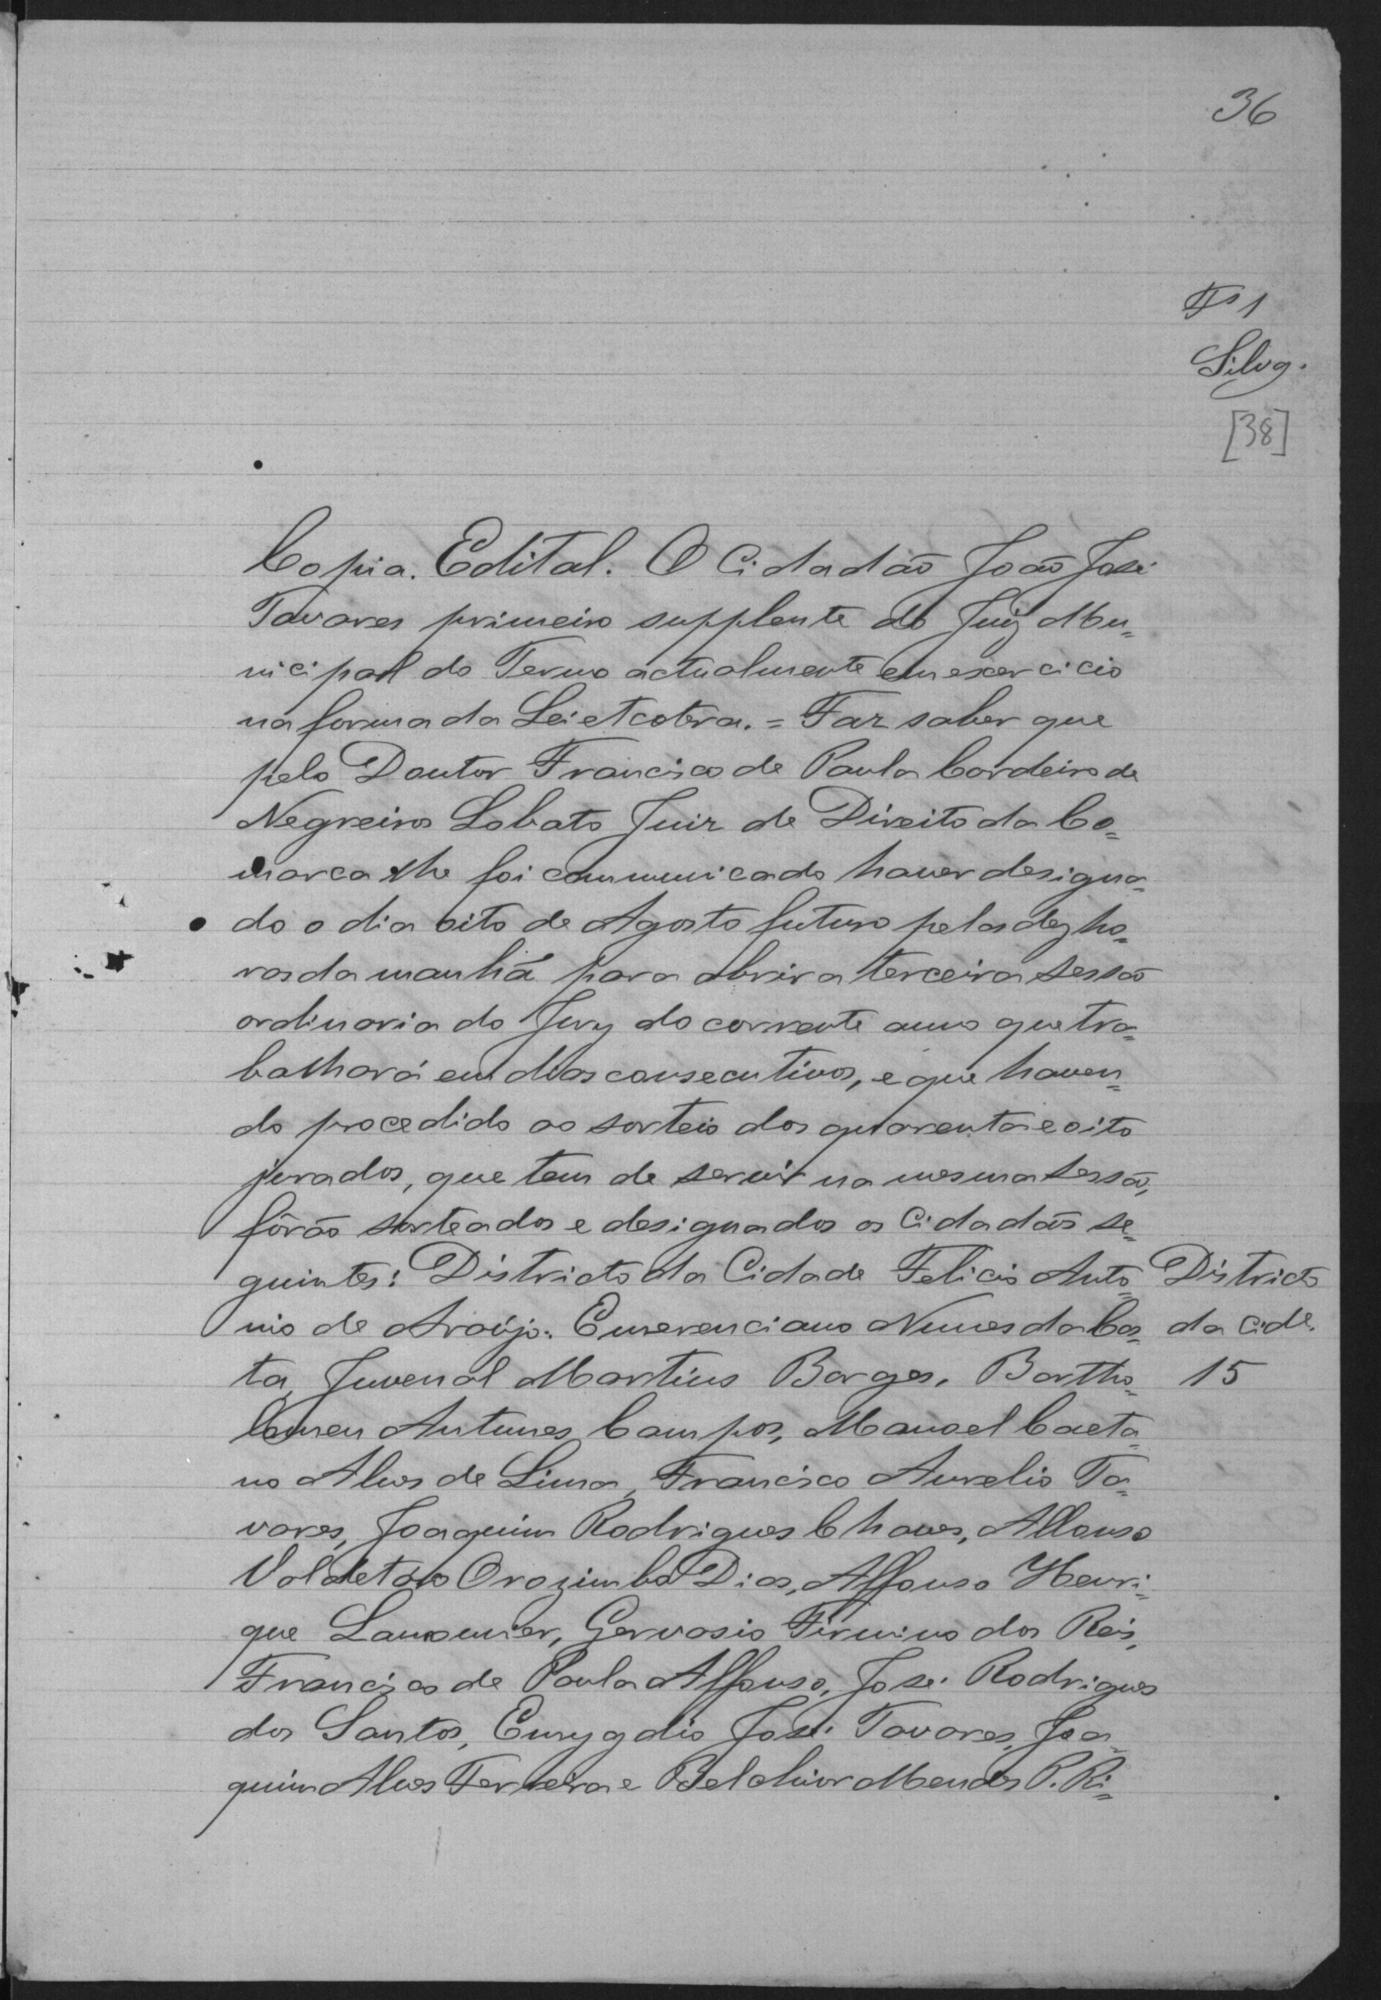 36
Fs 1
Silva.
[38]
Copia. Edital. O Cidadão João José
Tavares primeiro supplente do Juiz Mu=
nicipal do Termo actualmente em exercicio
na forma da Lei etcetera. = Faz saber que
pelo Doutor Francisco de Paula Cordeiro de
Negreiros Lobato Juiz de Direito da Co=
marca lhe foi communicado haver designa=
do o dia oito de Agosto futuro pelas dez ho=
ras da manhã para abrir a terceira sessão
ordinaria do Jury do corrente anno que tra=
balhará em dias consecutivos, e que haven=
do procedido ao sorteio dos quarenta e oito
jurados, que tem de servir na mesma sessão,
fôrão sorteados e designados os Cidadãos se=
guintes: Districto da Cidade Felicio Anto=
nio de Araújo. Emerenciano Nunes da Cos=
ta, Juvenal Martins Borges, Bartho=
lomeu Antunes Campos, Manoel Caeta=
no Alves de Lima, Francisco Aurelio Ta=
vares, Joaquim Rodrigues Chaves, Affonso
Valdetaro Orozimbo Dias, Affonso Henri=
que Lamounier, Gervasio Firmino dos Reis,
Francisco de Paula Affonso, José Rodrigues
dos Santos, Emygdio José Tavares, Joa=
quim Alves Ferreira e Belchior Mendes P. Ri=
Districto
da Cide.
15